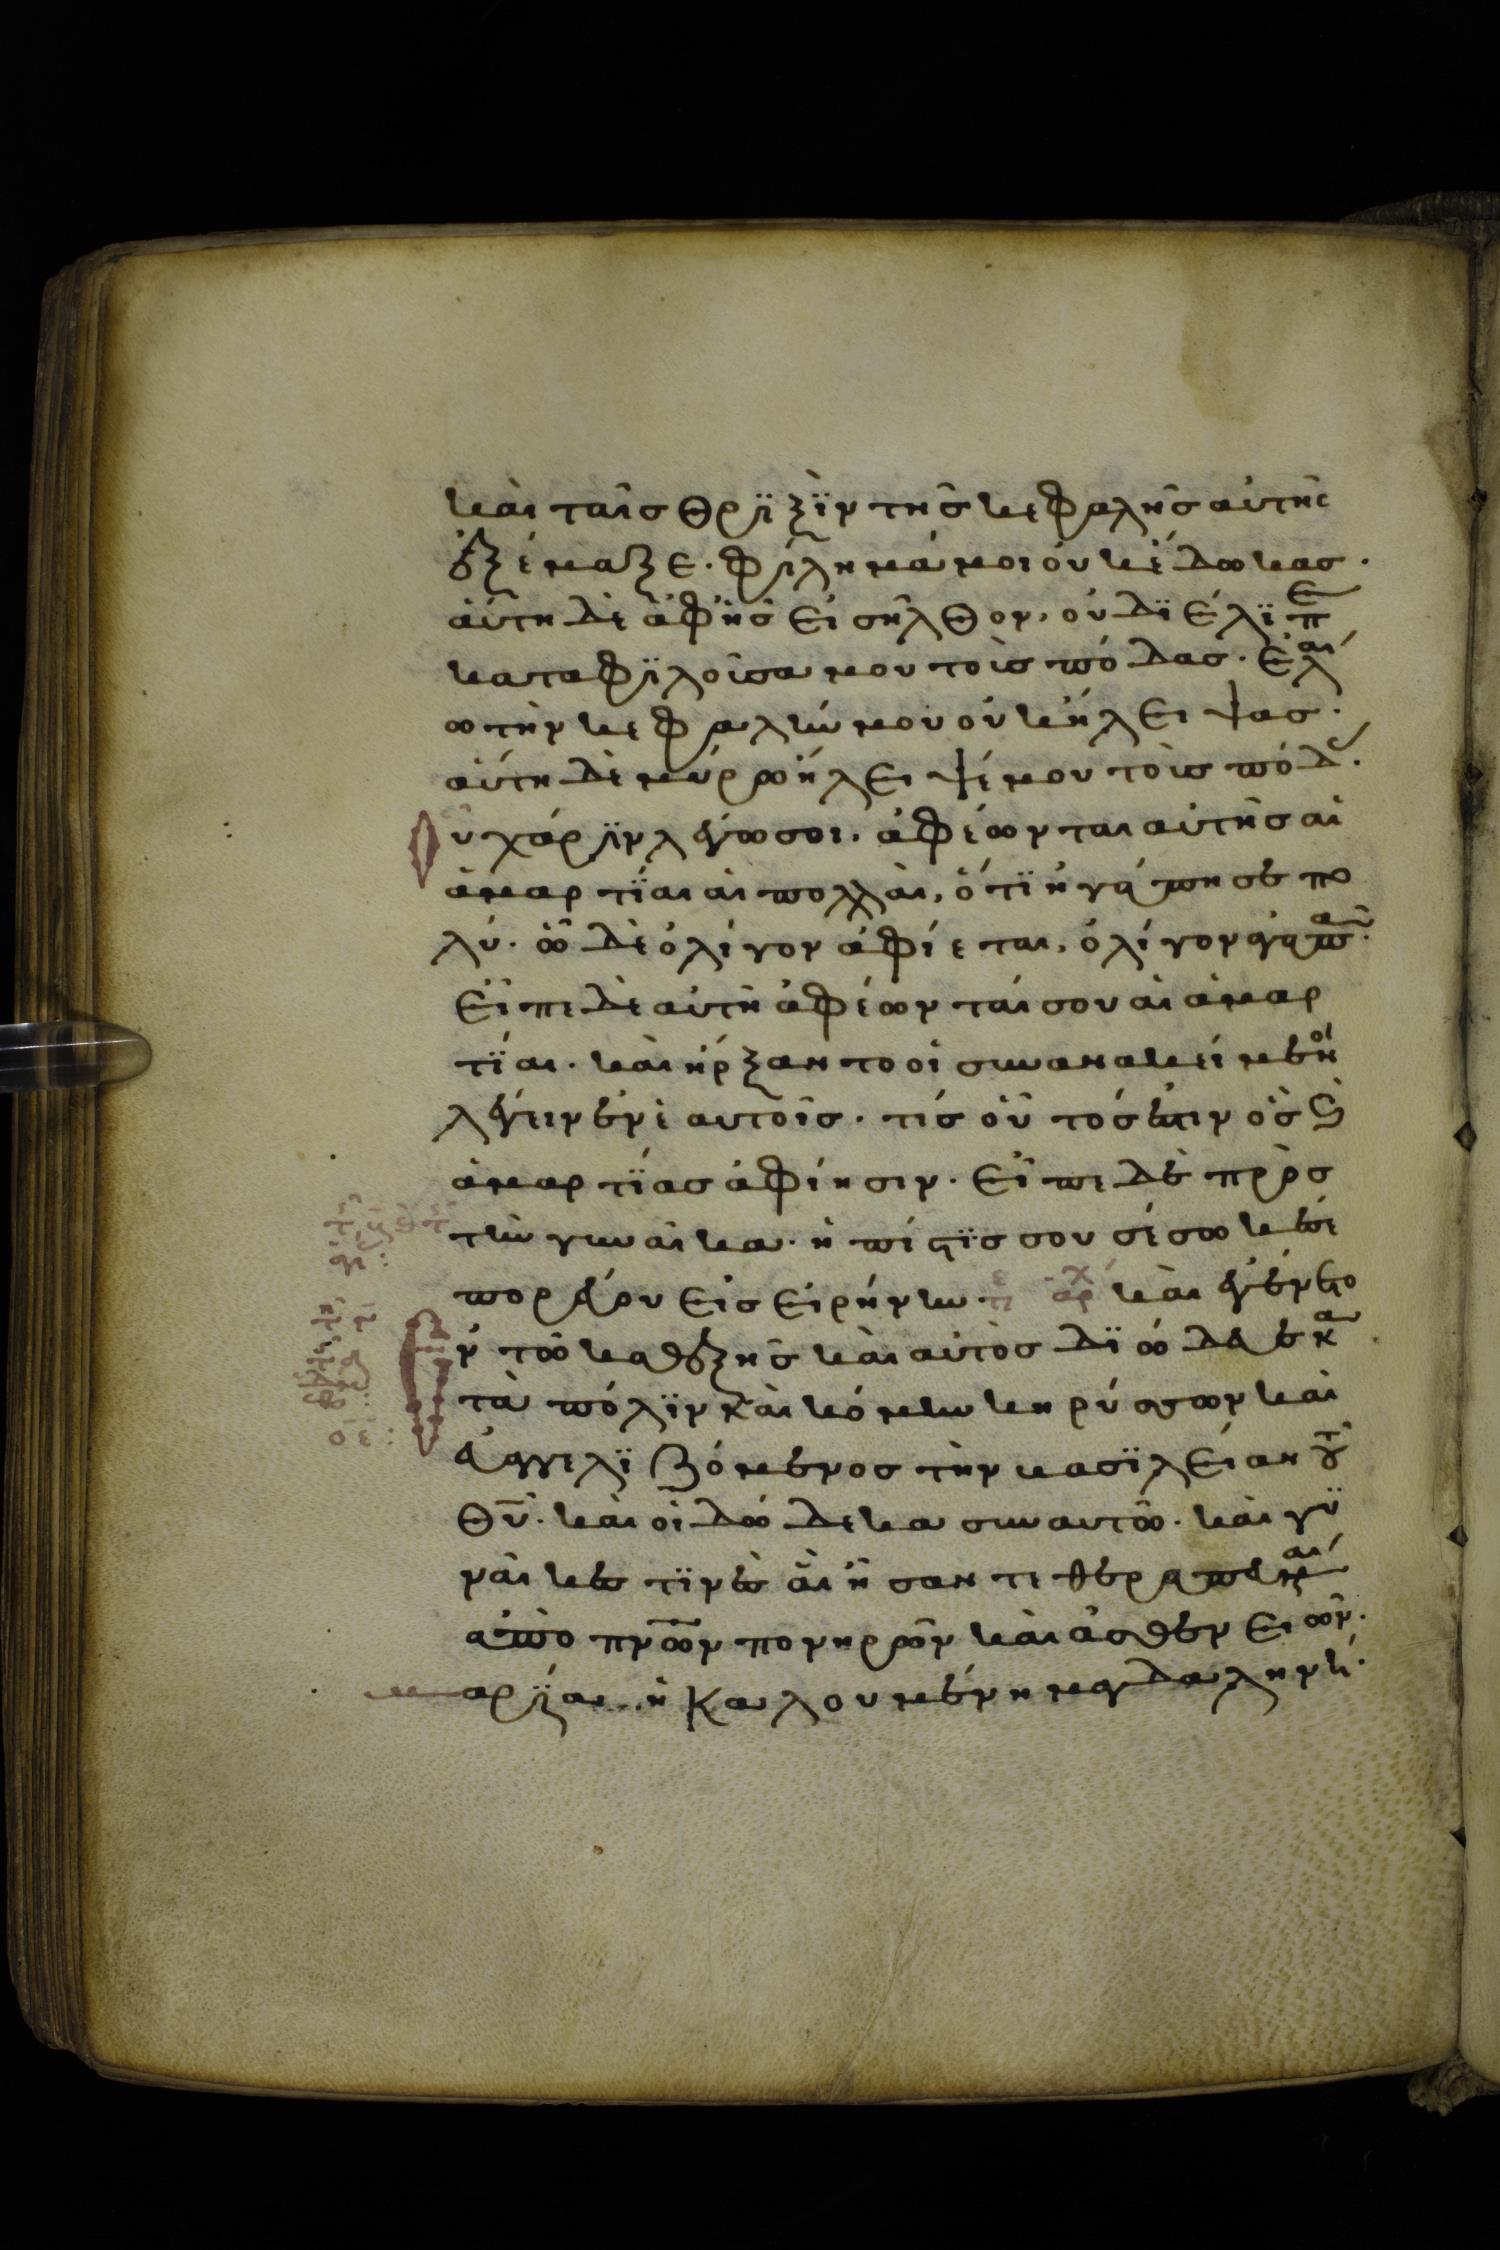 καὶ ταῖς θριξὶν τῆς κεφαλῆς αὐτῆς
ἐξέμαξε. φίλημά μοι οὐκ ἔδωκας.
αὕτη δὲ ἀφ' ἧς εἰσῆλθον, οὐ διέλιπε
καταφιλοῦσα μου τοὺς πόδας. ἐλαί
ω τὴν κεφαλήν μου οὐκ ἤλειψας.
αὕτη δὲ μύρω ἤλειψέ μου τοὺς πόδ.
οὗ χάριν λέγω σοι. ἀφέωνται αὐτῆς αἱ
ἁμαρτίαι αἱ πολλαὶ, ὅτι ἠγάπησε πο
λύ. ὧ δὲ ὀλίγον ἀφίεται, ὀλίγον ἀγαπᾶ.
εἶπε δὲ αὐτῆ ἀφέωνταί σου αἱ ἁμαρ
τίαι. καὶ ἤρξαντο οἱ συνανακείμενοι
λέγειν ἐν ἑαυτοῖς. τίς οὗτός ἐστιν ὃς ϗ
ἁμαρτίας ἀφίησιν. εἶπε δὲ πρὸς
τὴν γυναῖκα. ἡ πίστις σου σέσωκέ σε
πορεύου εἰς εἰρήνην. τε αρχ καὶ ἐγένετο
ἐν τῶ καθεξῆς καὶ αὐτὸς διώδευε κα
τὰ πόλιν καὶ κόμην κηρύσσων καὶ
εὐαγγελιζόμενος τὴν βασιλείαν τοῦ
θυ. καὶ οἱ δώδεκα σὺν αὐτῶ. καὶ γυ
ναῖκες τινὲς αἳ ἦσαν τεθεραπευμέναι
ἀπὸ πνων πονηρῶν καὶ ἀσθενειῶν.
μαρία ἡ καλουμένη μαγδαληνή.